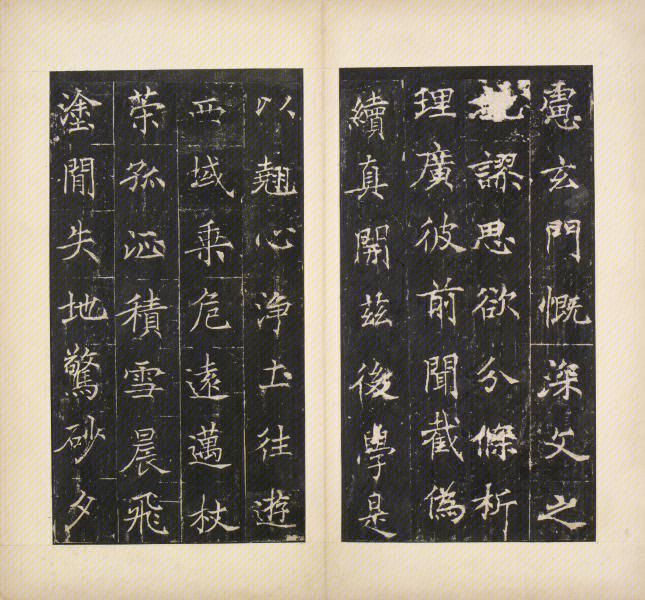 慮玄門慨深文之
謬思欲分條析
理廣彼前聞截偽
續真開茲後學是
以翹心浄土往遊
西域乗危遠邁杖
策孤征積雪晨飛
塗閒失地驚砂夕